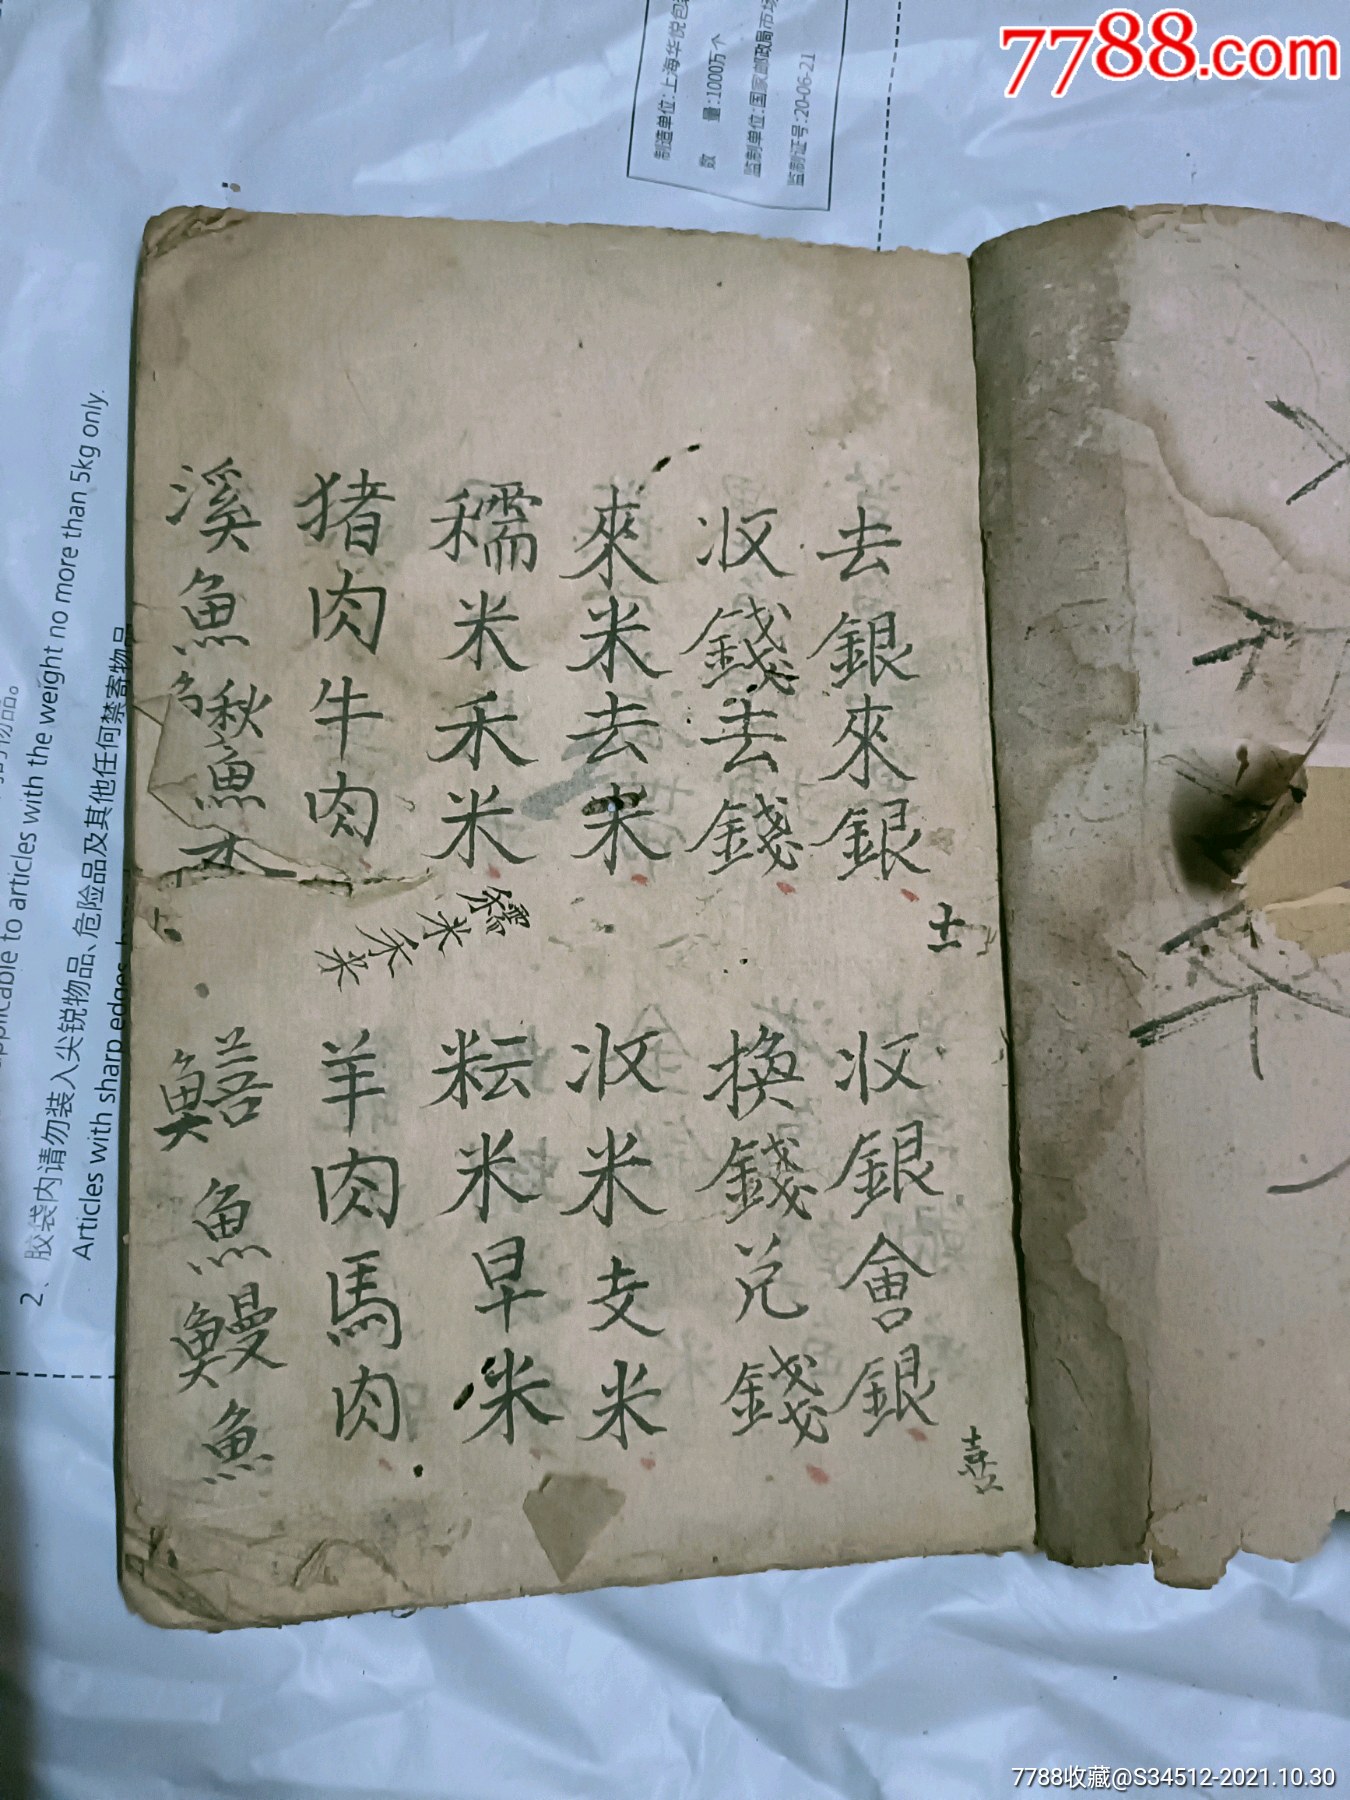 7788.com
制造单位:上海华悦包装
数 量:1000万个
监制单位:国家邮政局市场
监制证号:20-06-21
去銀來銀
收銀會銀
收錢去錢
換錢兌錢
來米去米
收米支米
糯米禾米
耘米早米
猪肉牛肉
羊肉馬肉
溪魚鰍魚
鱔魚鰻魚
士
喜
糯米
2、胶袋内请勿装入尖锐物品、危险品及其他任何禁寄物品
Articles with sharp edges
applicable to articles with the weight no more than 5kg only.
7788收藏@S34512-2021.10.30